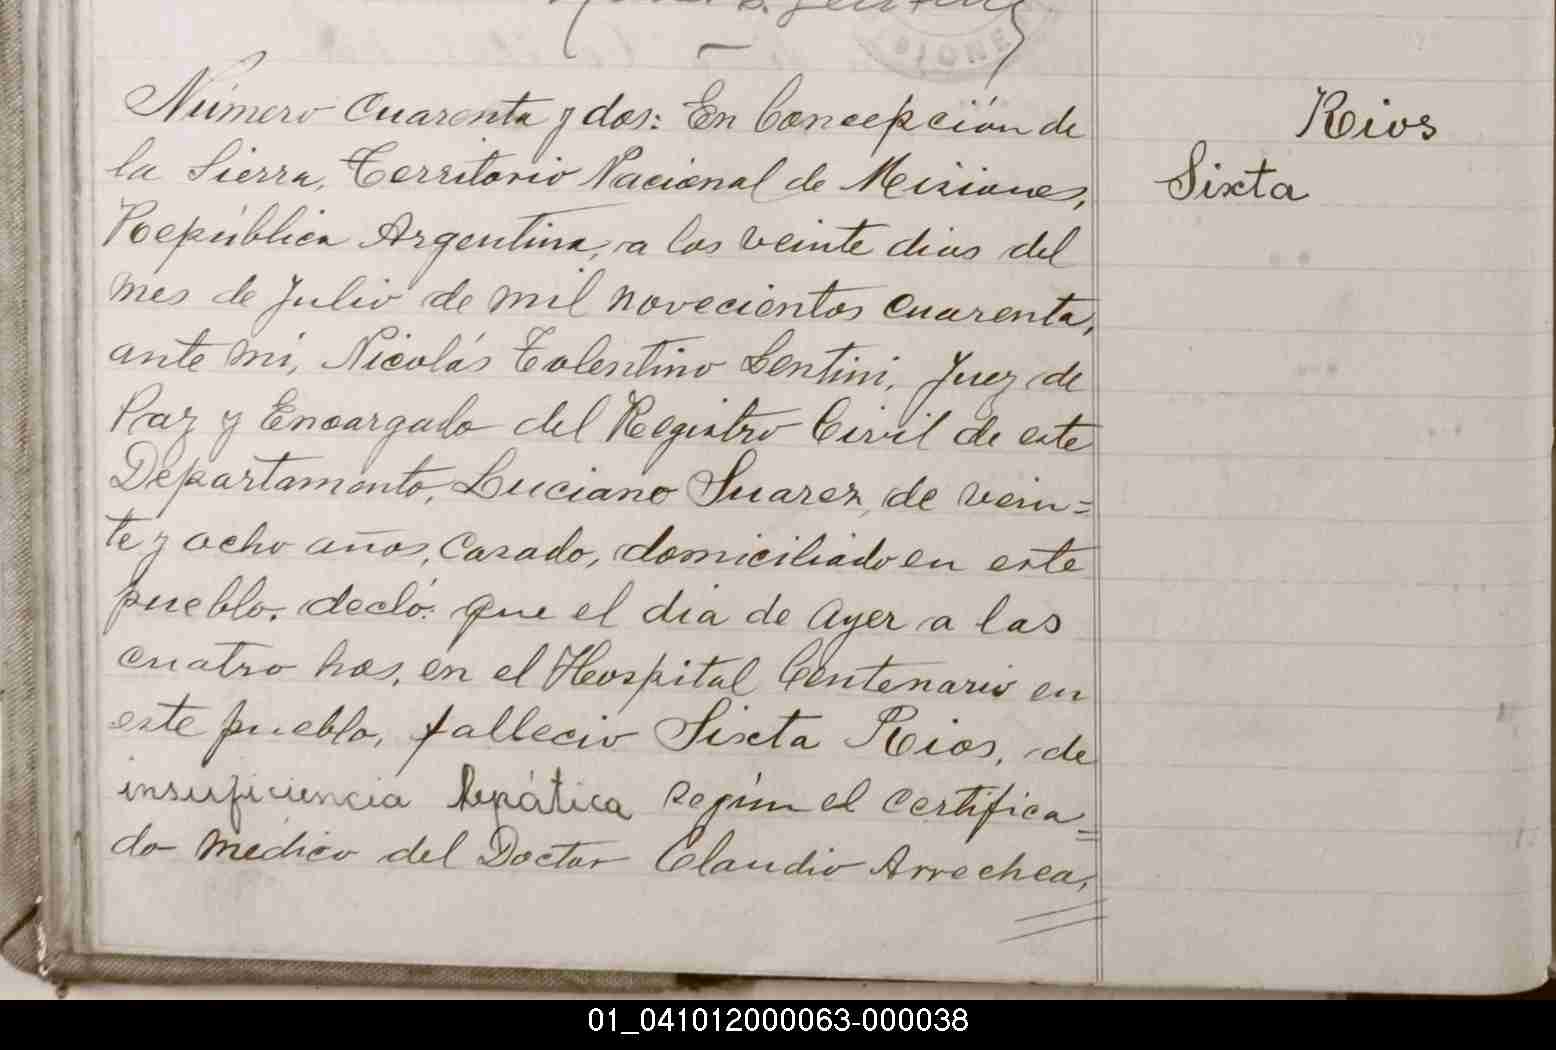 SIONE
Número Cuarenta y dos: En Concepción de
la Sierra, Territorio Nacional de Misiones,
República Argentina, a los veinte dias del
mes de Julio de mil novecientos cuarenta,
ante mi, Nicolás Tolentino Lentini, Juez de
Paz y Encargado del Registro Civil de este
Departamento, Luciano Suarez, de vein=
te y ocho años, casado, domiciliado en este
pueblo, decló: que el dia de ayer a las
cuatro hos, en el Hospital Centenario en
este pueblo, fallecio Sixta Rios, de
insuficiencia hepática según el certifica=
do médico del Doctor Claudio Arrechea,
Rios
Sixta
01_041012000063-000038